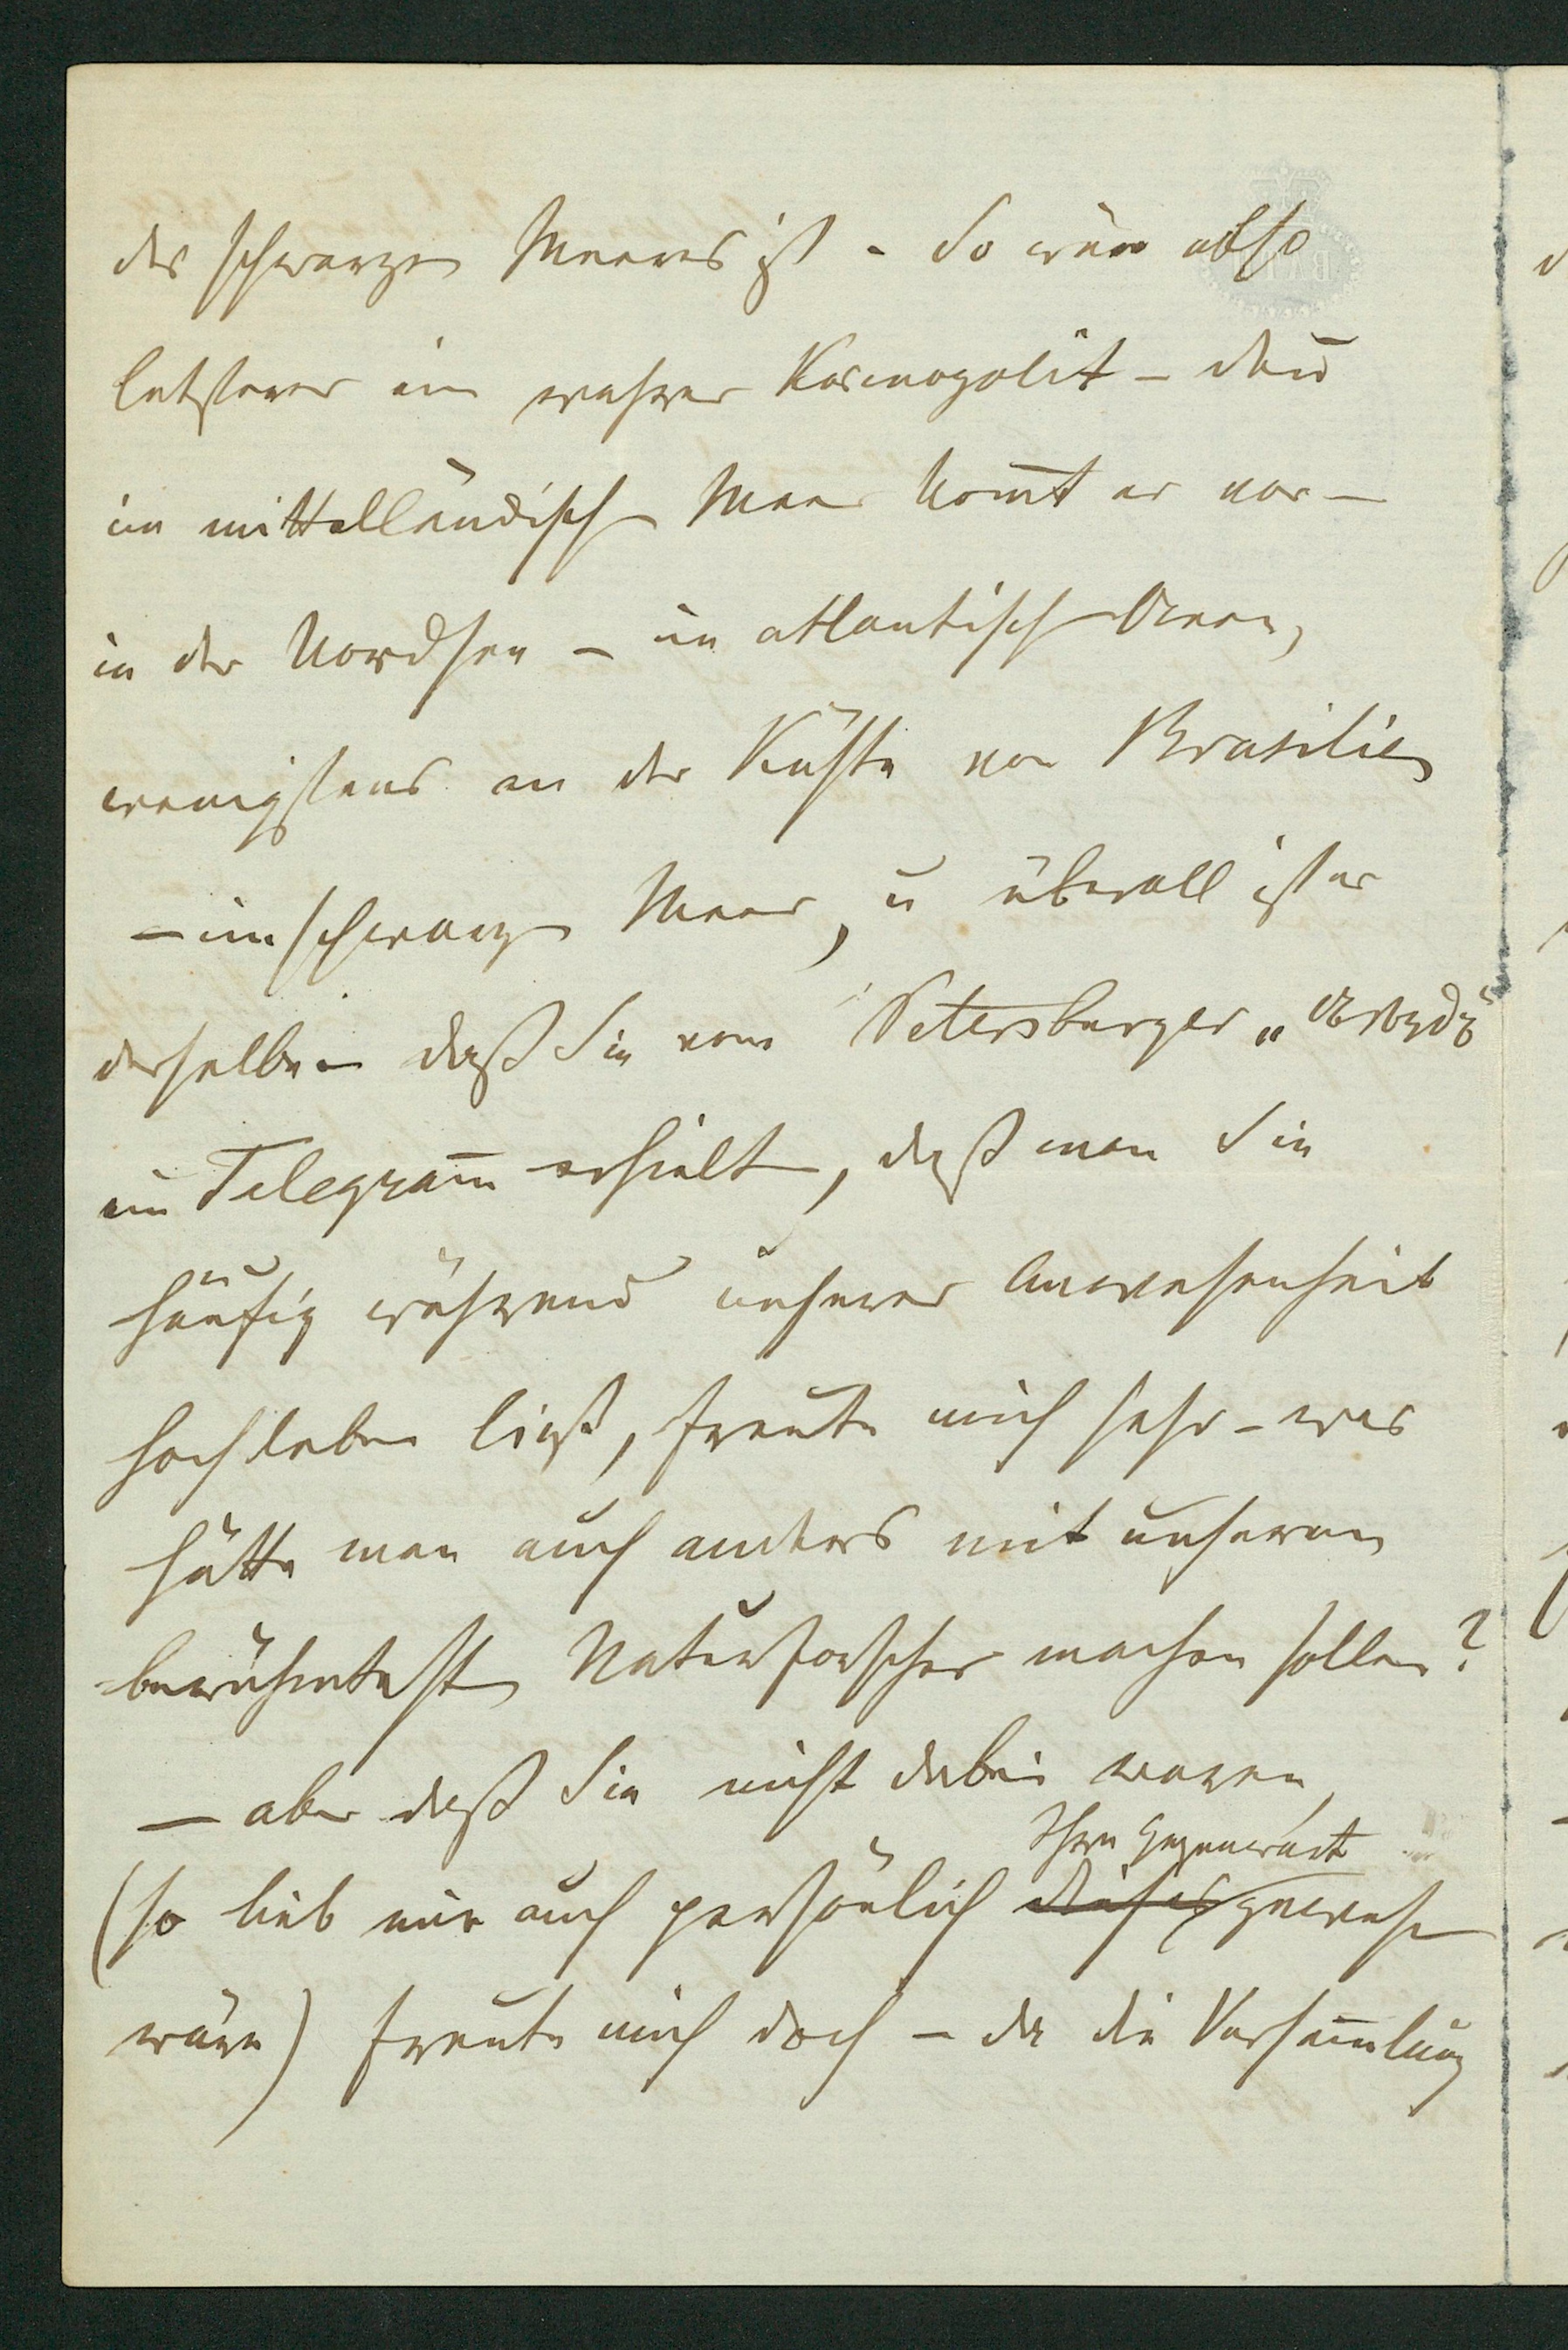 des schwarzen Meeres ist. So wäre also
letzterer ein wahrer Kosmopolit – deñ
im mittelländisch Meer kom̄t er vor –
in der Nordsee – im atlantisch Ocean,
wenigstens an der Küste von Brasilien
– im schwarzen Meer, u überall ist er
derselbe – daß Sie vom Petersburger „
ein Telegram̄ erhielt, daß man Sie
häufig während unserer Anwesenheit
hochleben ließ, freute mich sehr – was
hätte man auch anders mit unserem
berühmtesten Naturforscher machen sollen?
– aber daß Sie nicht dabei waren,
Ihre Gegenwart
(so lieb mir auch persönlich dieses gewesen
wäre) freute mich doch – da die Versam̄lung